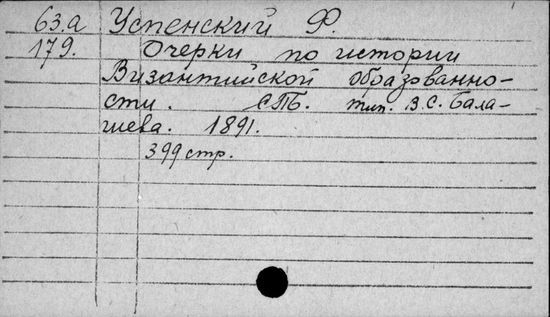 63.а Успенский Ф.
179. Очерки по истории
Византийской образованно-
сти. СПБ. тип. В.С. Бала-
шева. 1891.
399 стр.